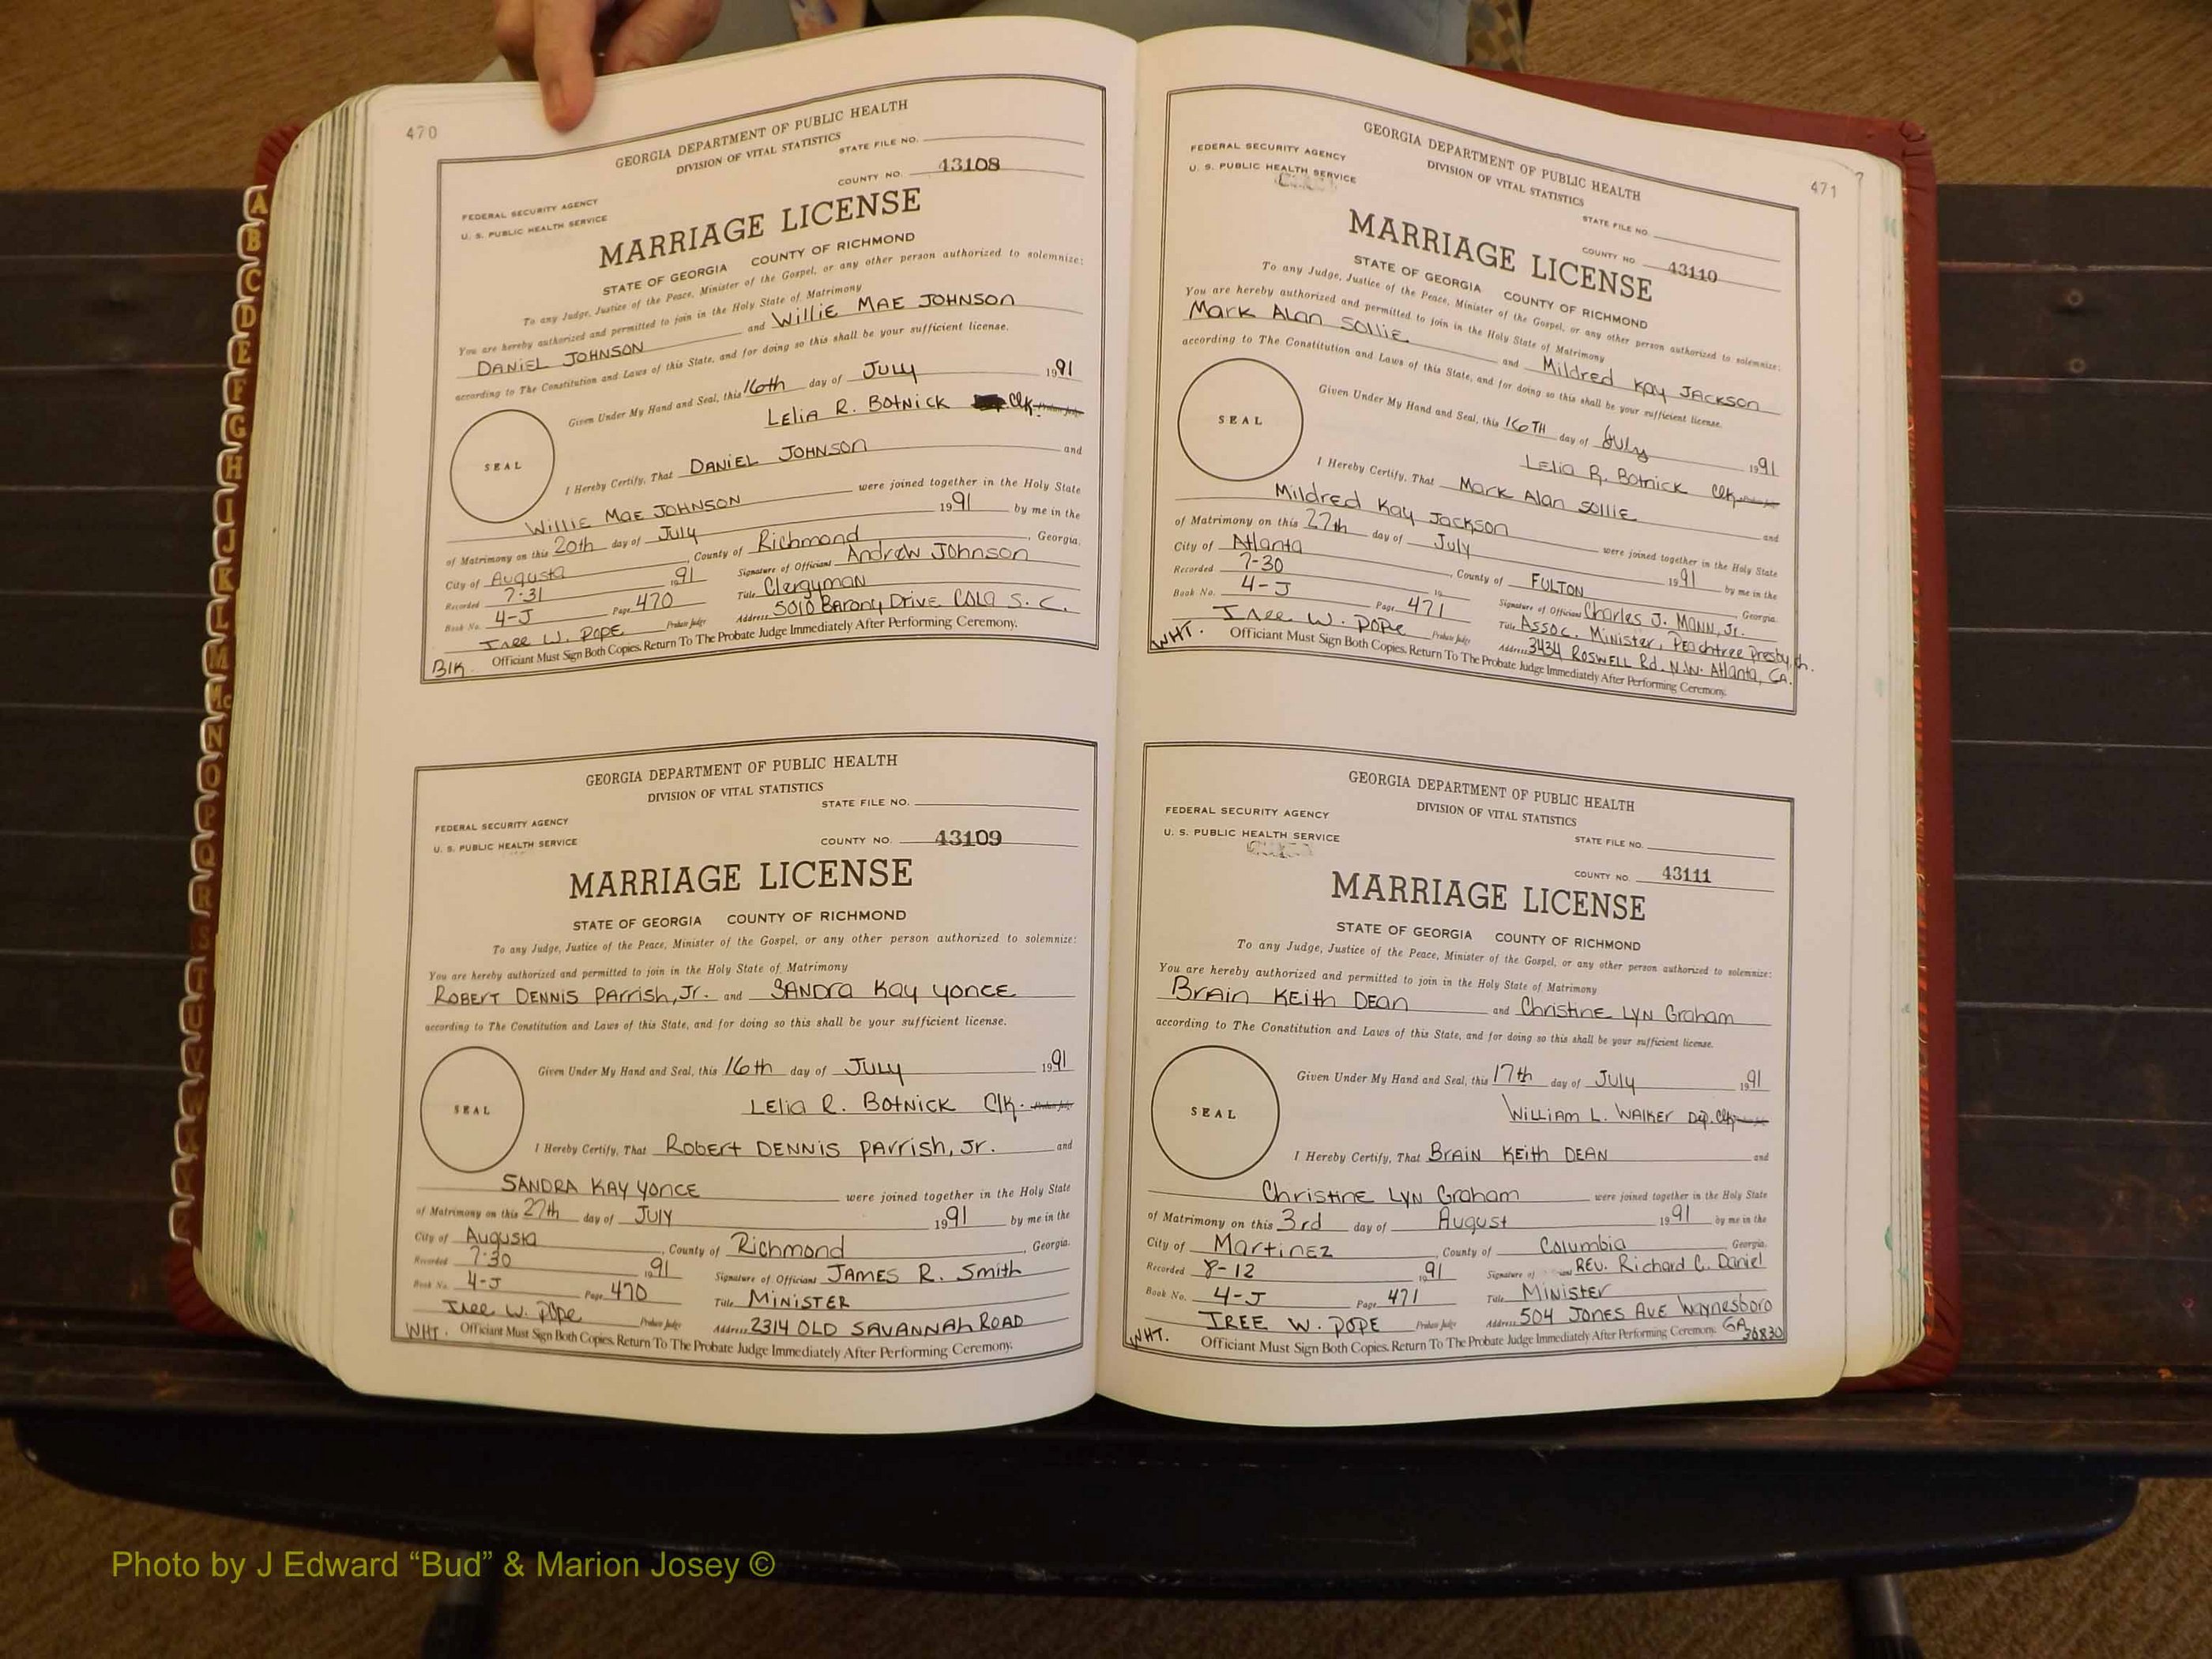 470
GEORGIA DEPARTMENT OF PUBLIC HEALTH
DIVISION OF VITAL STATISTICS
STATE FILE NO.
COUNTY NO. 43108
FEDERAL SECURITY AGENCY
U. S. PUBLIC HEALTH SERVICE
MARRIAGE LICENSE
STATE OF GEORGIA COUNTY OF RICHMOND
To any Judge, Justice of the Peace, Minister of the Gospel, or any other person authorized to solemnize:
You are hereby authorized and permitted to join in the Holy State of Matrimony
DANiEL JOHNSON and WilliE MAE JOHNSON
according to The Constitution and Laws of this State, and for doing so this shall be your sufficient license.
Given Under My Hand and Seal, this 16th day of July 1991
LELiA R. BOtNiCK Clk. Probate Judge
SEAL
I Hereby Certify, That DANiEL JOHNSON and
WilliE MaE JOHNSON were joined together in the Holy State
of Matrimony on this 20th day of July 1991 by me in the
City of Augusta, County of Richmond, Georgia.
Recorded 7-31 1991 Signature of Officiant Andrew Johnson
Book No. 4-J Page 470 Title Clergyman
Iree W. Pope Probate Judge Address 5010 Barony Drive Cola S. C.
Blk. Officiant Must Sign Both Copies. Return To The Probate Judge Immediately After Performing Ceremony.
GEORGIA DEPARTMENT OF PUBLIC HEALTH
DIVISION OF VITAL STATISTICS
STATE FILE NO.
FEDERAL SECURITY AGENCY
U. S. PUBLIC HEALTH SERVICE
COUNTY NO. 43109
MARRIAGE LICENSE
STATE OF GEORGIA COUNTY OF RICHMOND
To any Judge, Justice of the Peace, Minister of the Gospel, or any other person authorized to solemnize:
You are hereby authorized and permitted to join in the Holy State of Matrimony
RObERT DENNIS PArrish, Jr. and SANdra Kay YONCE
according to The Constitution and Laws of this State, and for doing so this shall be your sufficient license.
Given Under My Hand and Seal, this 16th day of July 1991
LElia R. BOtNICK Clk. Probate Judge
SEAL
I Hereby Certify, That RobErt DENNIS PArrish, Jr. and
SANDRA KAY YONCE were joined together in the Holy State
of Matrimony on this 27th day of JULY 1991 by me in the
City of Augusta, County of Richmond, Georgia.
Recorded 7-30 1991 Signature of Officiant JAMES R. Smith
Book No. 4-J Page 470 Title MiNiSTER
Iree W. Pope Probate Judge Address 2314 OLD SAVANNAh ROAD
WHT. Officiant Must Sign Both Copies. Return To The Probate Judge Immediately After Performing Ceremony.
471
GEORGIA DEPARTMENT OF PUBLIC HEALTH
DIVISION OF VITAL STATISTICS
FEDERAL SECURITY AGENCY
U. S. PUBLIC HEALTH SERVICE
STATE FILE NO.
COUNTY NO. 43110
MARRIAGE LICENSE
STATE OF GEORGIA COUNTY OF RICHMOND
To any Judge, Justice of the Peace, Minister of the Gospel, or any other person authorized to solemnize:
You are hereby authorized and permitted to join in the Holy State of Matrimony
Mark Alan Sollie and Mildred Kay Jackson
according to The Constitution and Laws of this State, and for doing so this shall be your sufficient license.
Given Under My Hand and Seal, this 16TH day of July 1991
LElia R. Botnick Clk.
SEAL
I Hereby Certify, That Mark Alan Sollie and
Mildred Kay Jackson were joined together in the Holy State
of Matrimony on this 27th day of July 1991 by me in the
City of Atlanta, County of FULTON Georgia.
Recorded 7-30 19 Signature of Officiant Charles J. MANN, Jr.
Book No. 4-J Page 471 Title Assoc. Minister, Peachtree Presby. ch.
Iree W. Pope Probate Judge Address 3434 Roswell Rd. N.W. Atlanta, GA.
WHT. Officiant Must Sign Both Copies. Return To The Probate Judge Immediately After Performing Ceremony.
GEORGIA DEPARTMENT OF PUBLIC HEALTH
DIVISION OF VITAL STATISTICS
FEDERAL SECURITY AGENCY
U. S. PUBLIC HEALTH SERVICE
STATE FILE NO.
COUNTY NO. 43111
MARRIAGE LICENSE
STATE OF GEORGIA COUNTY OF RICHMOND
To any Judge, Justice of the Peace, Minister of the Gospel, or any other person authorized to solemnize:
You are hereby authorized and permitted to join in the Holy State of Matrimony
BrAin KEith DEan and ChristinE Lyn Graham
according to The Constitution and Laws of this State, and for doing so this shall be your sufficient license.
Given Under My Hand and Seal, this 17th day of July 1991
WilliAm L. WAlKER Dep. Clk.
SEAL
I Hereby Certify, That BrAiN KEith DEAN and
ChristinE Lyn Graham were joined together in the Holy State
of Matrimony on this 3rd day of August 1991 by me in the
City of MartinEz, County of Columbia Georgia.
Recorded 8-12 1991 Signature of REV. Richard C. Daniel
Book No. 4-J Page 471 Title Minister
IREE W. POPE Probate Judge Address 504 JONES AVE Waynesboro
WHT. Officiant Must Sign Both Copies. Return To The Probate Judge Immediately After Performing Ceremony. GA 30830
A
B
C
D
E
F
G
H
I
J
K
L
M
Mc
N
O
P
Q
R
S
T
U
V
W
Photo by J Edward “Bud” & Marion Josey ©